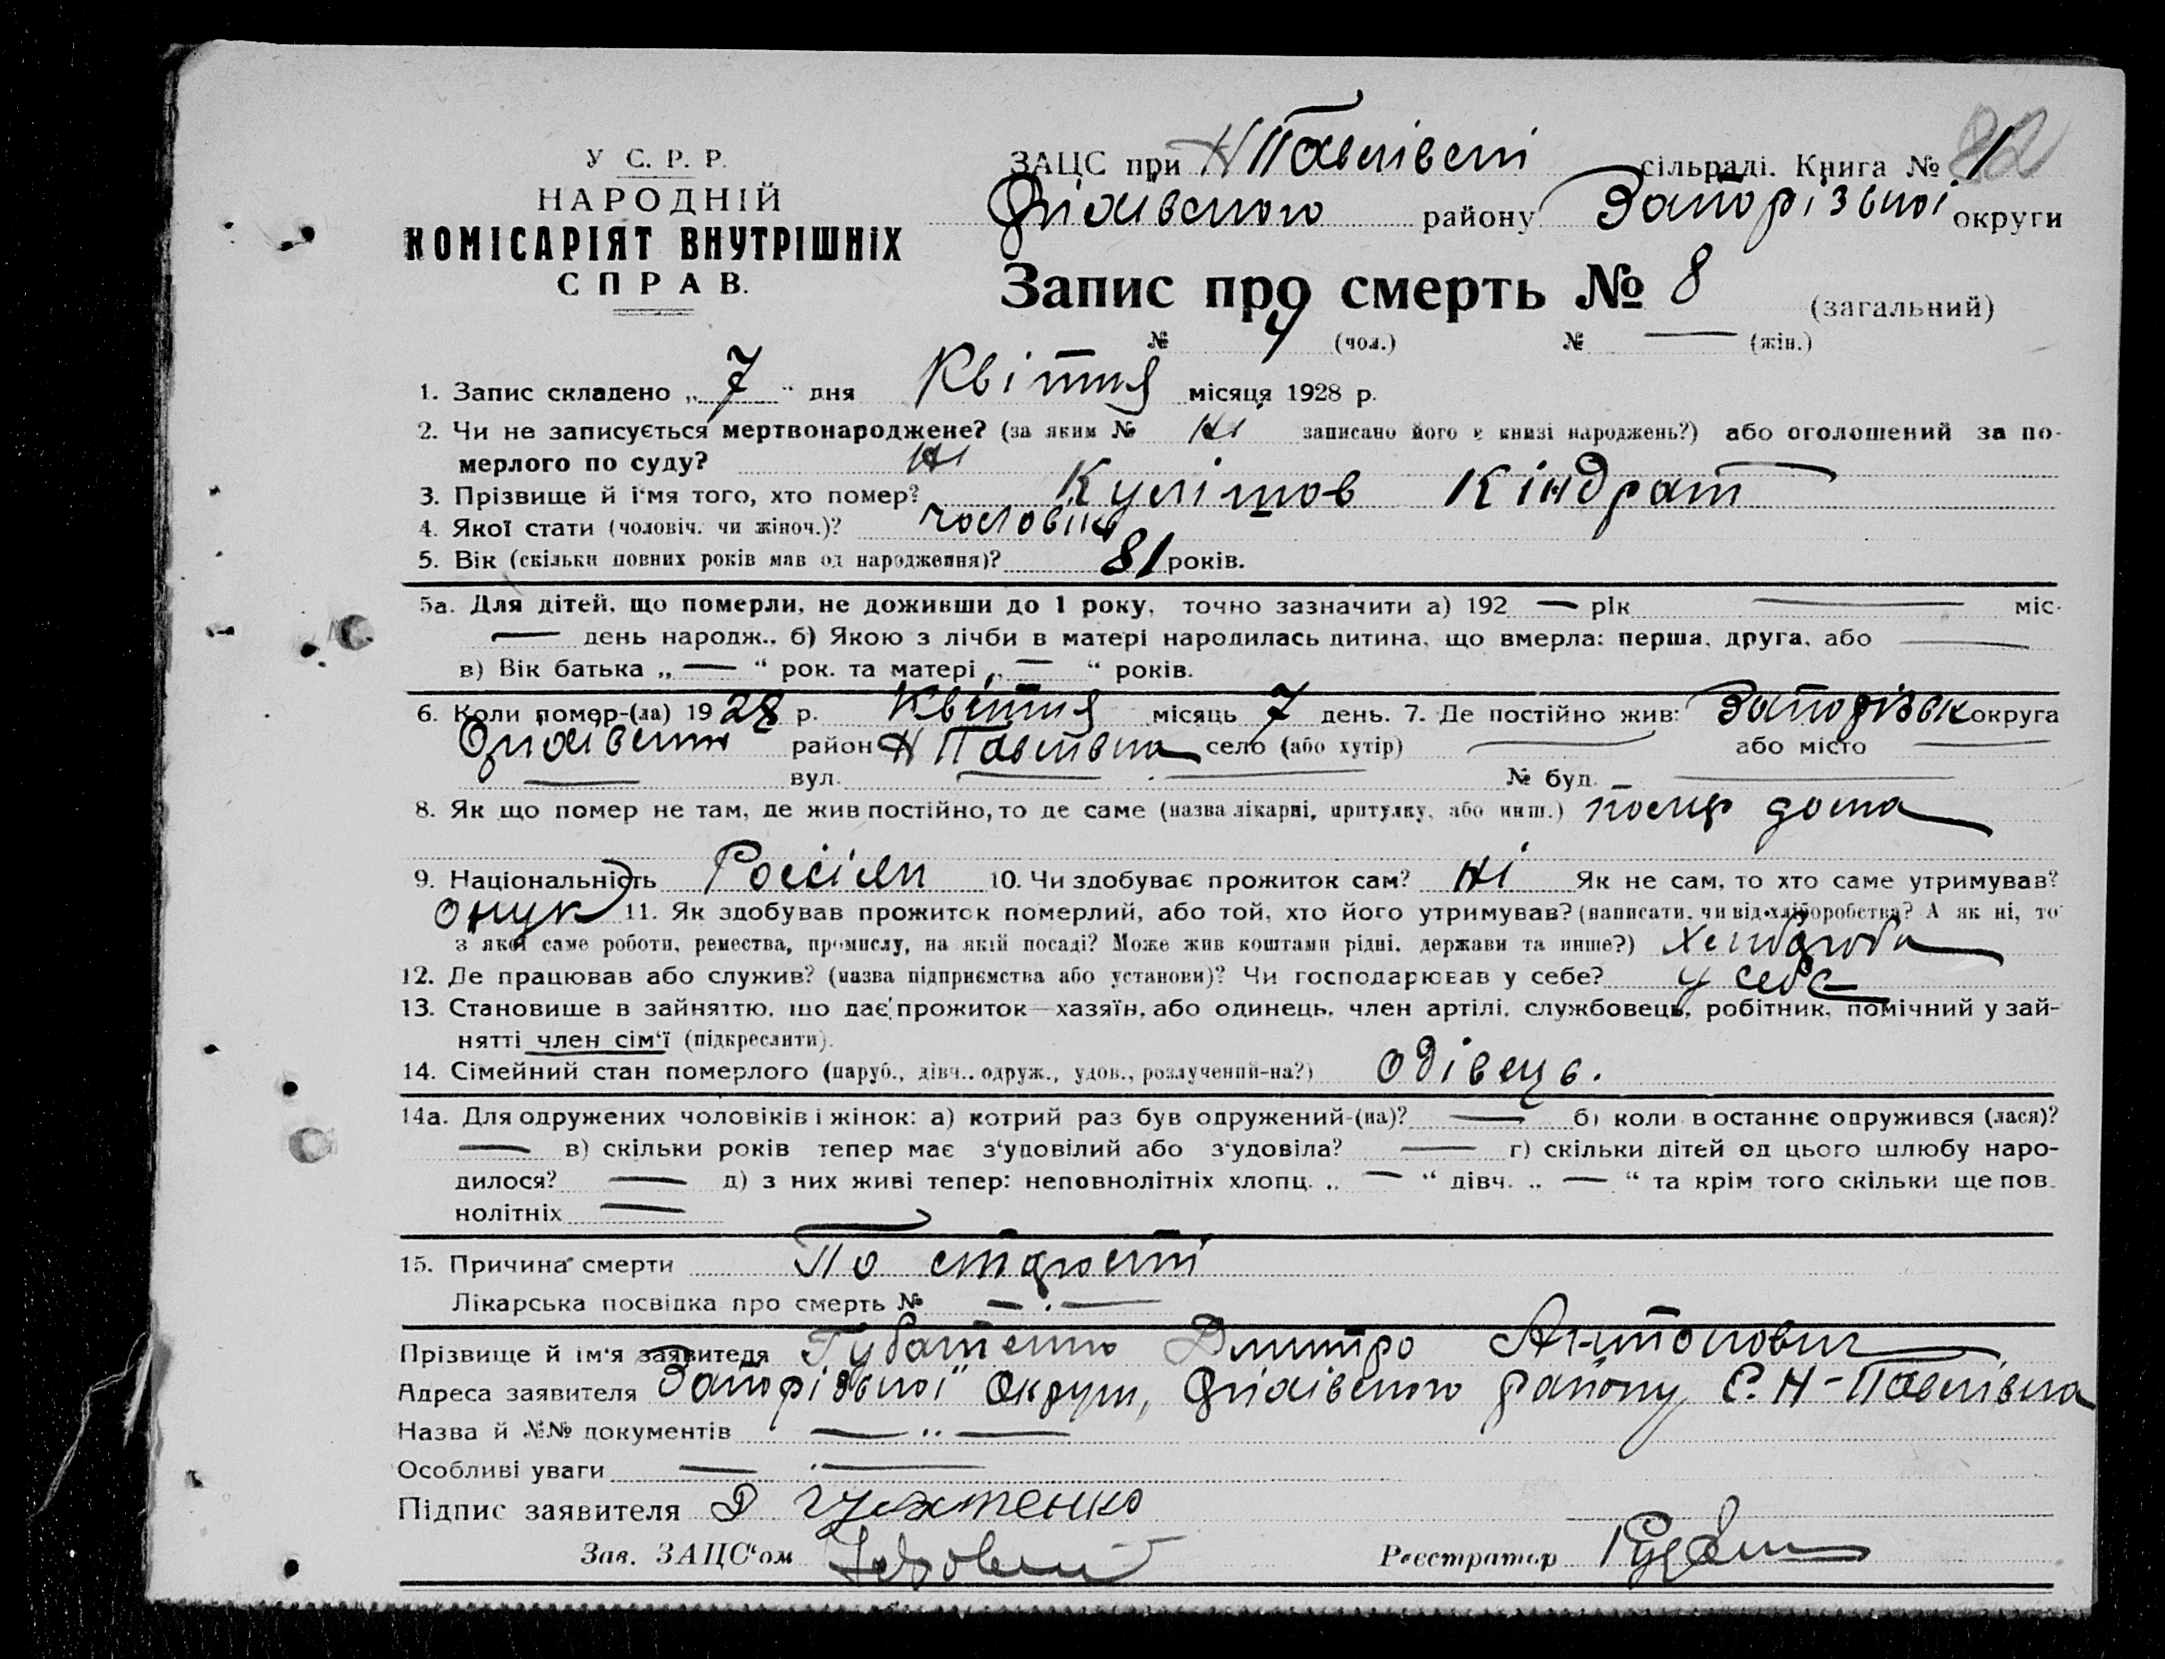 82
У С. Р. Р.
НАРОДНІЙ
КОМІСАРІЯТ ВНУТРІШНІХ
СПРАВ.
ЗАЦС при Н Павлівській сільраді. Книга № 1
району Запорізької округи
Запис про смерть № 8 (загальний)
№ (чол.) № — (жін.)
1. Запис складено „ 7 “ дня Квітня місяця 1928 р.
2. Чи не записується мертвонароджене? (за яким № Ні записано його в книзі народжень?) або оголошений за по-
мерлого по суду? Ні
3. Прізвище й ім'я того, хто помер? Кулішов Кіндрат
4. Якої стати (чоловіч. чи жіноч.)?
5. Вік (скільки повних років мав од народження)? 81 років.
5а. Для дітей, що померли, не доживши до 1 року, точно зазначити а) 192 — рік — міс.
— день народж., б) Якою з лічби в матері народилась дитина, що вмерла: перша, друга, або —
в) Вік батька „ — “ рок. та матері „ — “ років.
6. Коли помер-(ла) 1928 р. Квітня місяць 7 день. 7. Де постійно жив: Запорізьк округа
район Н Павлівка село (або хутір) — або місто —
— вул. — . — № буд. —
8. Як що помер не там, де жив постійно, то де саме (назва лікарні, притулку, або инш.) помер дома
9. Національність 10. Чи здобуває прожиток сам? Ні Як не сам, то хто саме утримував?
Онук 11. Як здобував прожиток померлий, або той, хто його утримував? (написати, чи від хліборобства? А як ні, то
з якої саме роботи, ремества, промислу, на якій посаді? Може жив коштами рідні, держави та инше?)
12. Де працював або служив? (назва підприємства або установи)? Чи господарював у себе? у себе
13. Становище в зайняттю, що дає прожиток—хазяїн, або одинець, член артілі, службовець, робітник, помічний у зай-
нятті член сім'ї (підкреслити).
14. Сімейний стан померлого (паруб., дівч., одруж., удов., розлучений-на?) Одівець.
14а. Для одружених чоловіків і жінок: а) котрий раз був одружений-(на)? — б) коли в останнє одружився (лася)?
— в) скільки років тепер має з'удовілий або з'удовіла? — г) скільки дітей од цього шлюбу наро-
дилося? — д) з них живі тепер: неповнолітніх хлопц. „ — “ дівч. „ — “ та крім того скільки ще пов-
нолітніх —
15. Причина смерти По старості
Лікарська посвідка про смерть № — . —
Прізвище й ім'я заявителя Губатенко Дмитро Антонович
Адреса заявителя Запорізької Округи, району, С. Н-Павлівка
Назва й №№ документів — .. —
Особливі уваги — . —
Підпис заявителя
Зав. ЗАЦС'ом Реєстратор